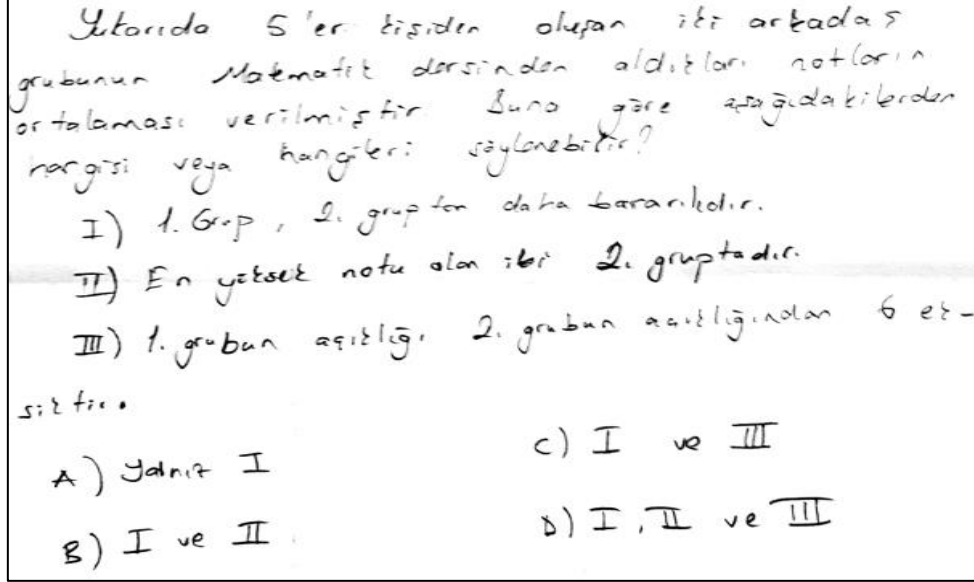 Yukarıda 5'er kişiden oluşan iki arkadaş
grubunun Matematik dersinden aldıkları notların
ortalaması verilmiştir. Buna göre aşağıdakilerden
hangisi veya hangileri söylenebilir?
I) 1. Grup, 2. gruptan daha başarılıdır.
II) En yüksek notu alan 2. gruptadır.
III) 1. grubun açıklığı, 2. grubun açıklığından 6 ek-
siktir.
A) Yalnız I
C) I ve III
B) I ve II
D) I, II ve III